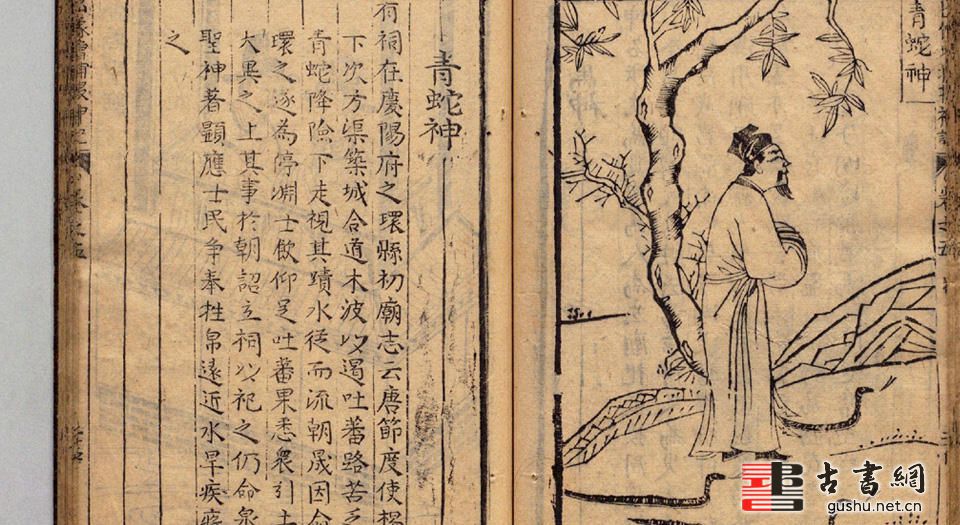 青蛇神
青蛇神
有祠在慶陽府之環縣初廟志云唐節度使楊
下次方渠築城合道木波以遏吐蕃路苦乏
青蛇降險下走視其蹟水從而流朝晟因命
環之遂為停淵士飲仰足吐蕃果悉衆引
大異之上其事於朝詔立祠以祀之仍命泉
聖神著顯應士民争奉牲帛遠近水旱疾疫
之
古書網
gushu.net.cn